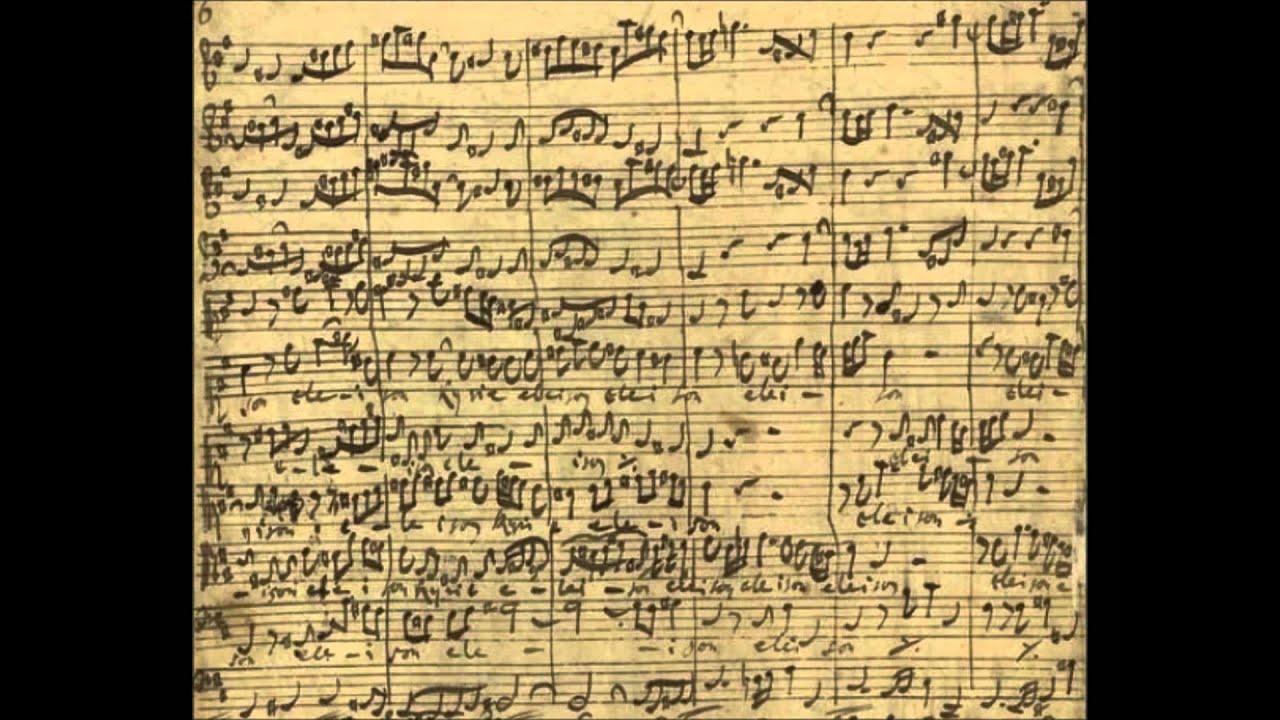 6
son ele - i son Kyrie eleison elei son elei - son elei -
e - le - i son ele - ison ⁒ elei son
eison e - le ison Kyri e ele - i son eleison -
- ison ele i son Kyrie e - lei - son eleison eleison eleison eleison e
son ele - i son ele - - i son elei son ⁒ ⁒